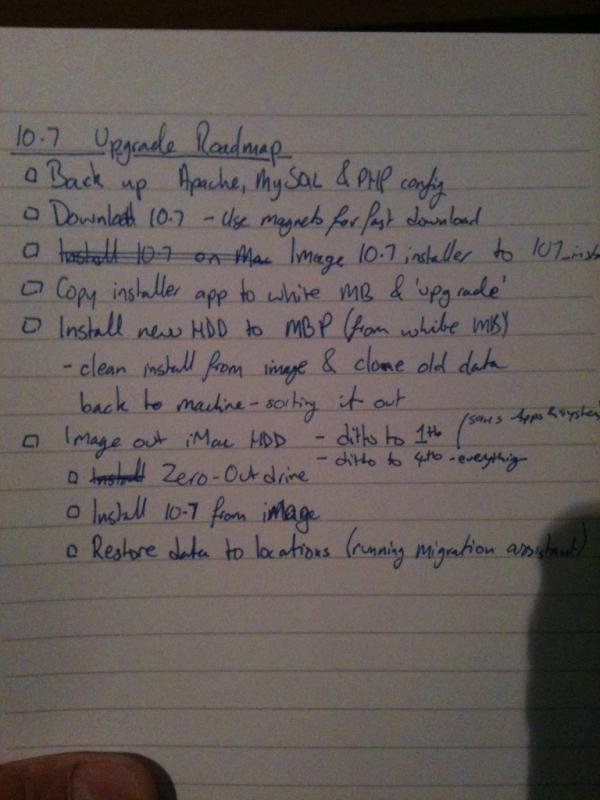 10.7 Upgrade Roadmap
Back up Apache, MySQL & PHP config
Download 10.7 - Use magnets for fast download
Install 10.7 on Mac Image 10.7 installer to 107_insta
Copy installer app to white MB & 'upgrade'
Install new HDD to MBP (from white MB)
- clean install from image & clone old data
back to machine - sorting it out
Image out iMac HDD - ditto to 1tb (sans Apps & system)
- ditto to 4tb - everything
Install Zero-Out drive
Install 10.7 from image
Restore data to locations (running migration assistant)